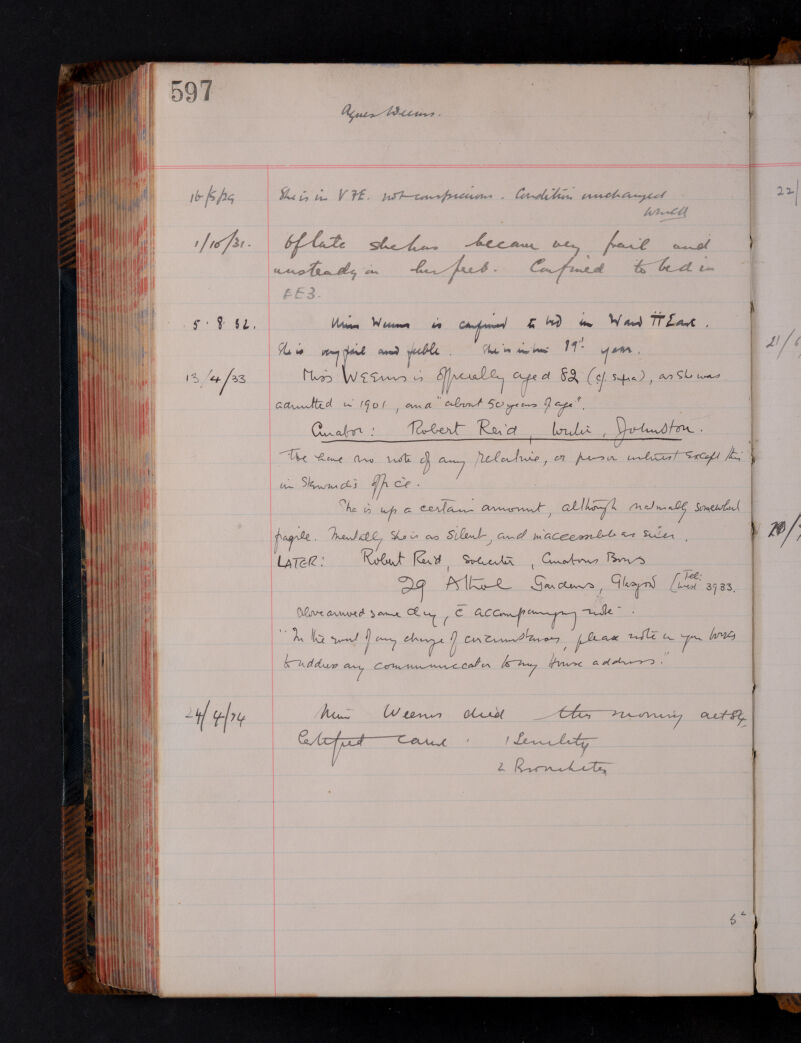 597
Agnes Weems.
22/
16/5/29 She is in V FE. not conspicuous. Condition unchanged
1/10/31. Of late she has became very frail and
unsteady on her feet. Confined to bed in
FE3.
5.8.32. Miss Weems is confined to bed in Ward II East.
She is very frail and feeble. She is in her year.
13/4/33 Miss Weems is officially aged 82 (cf. supra), as she was
admitted in 1901, and "about 50 years of age".
Curator: Robert Reid, Writer, Johnston.
We have no note of any relative, or person interest except this
in Steward's office.
She is up a certain amount, although naturally somewhat
fragile. Mentally she is as silent, and inaccessible as ever.
LATER: Robert Reid, Solicitor, Curator Bonis
29 Athol Gardens, Glasgow (Tel: West 3933.
Above arrived same day, c̄ accompanying note -.
"In the event of any change of circumstances, please note in your books
to address any communication to my House address."
24/4/34 Miss Weems died this morning aet 84.
Certified cause. 1 Senility
2 Bronchitis